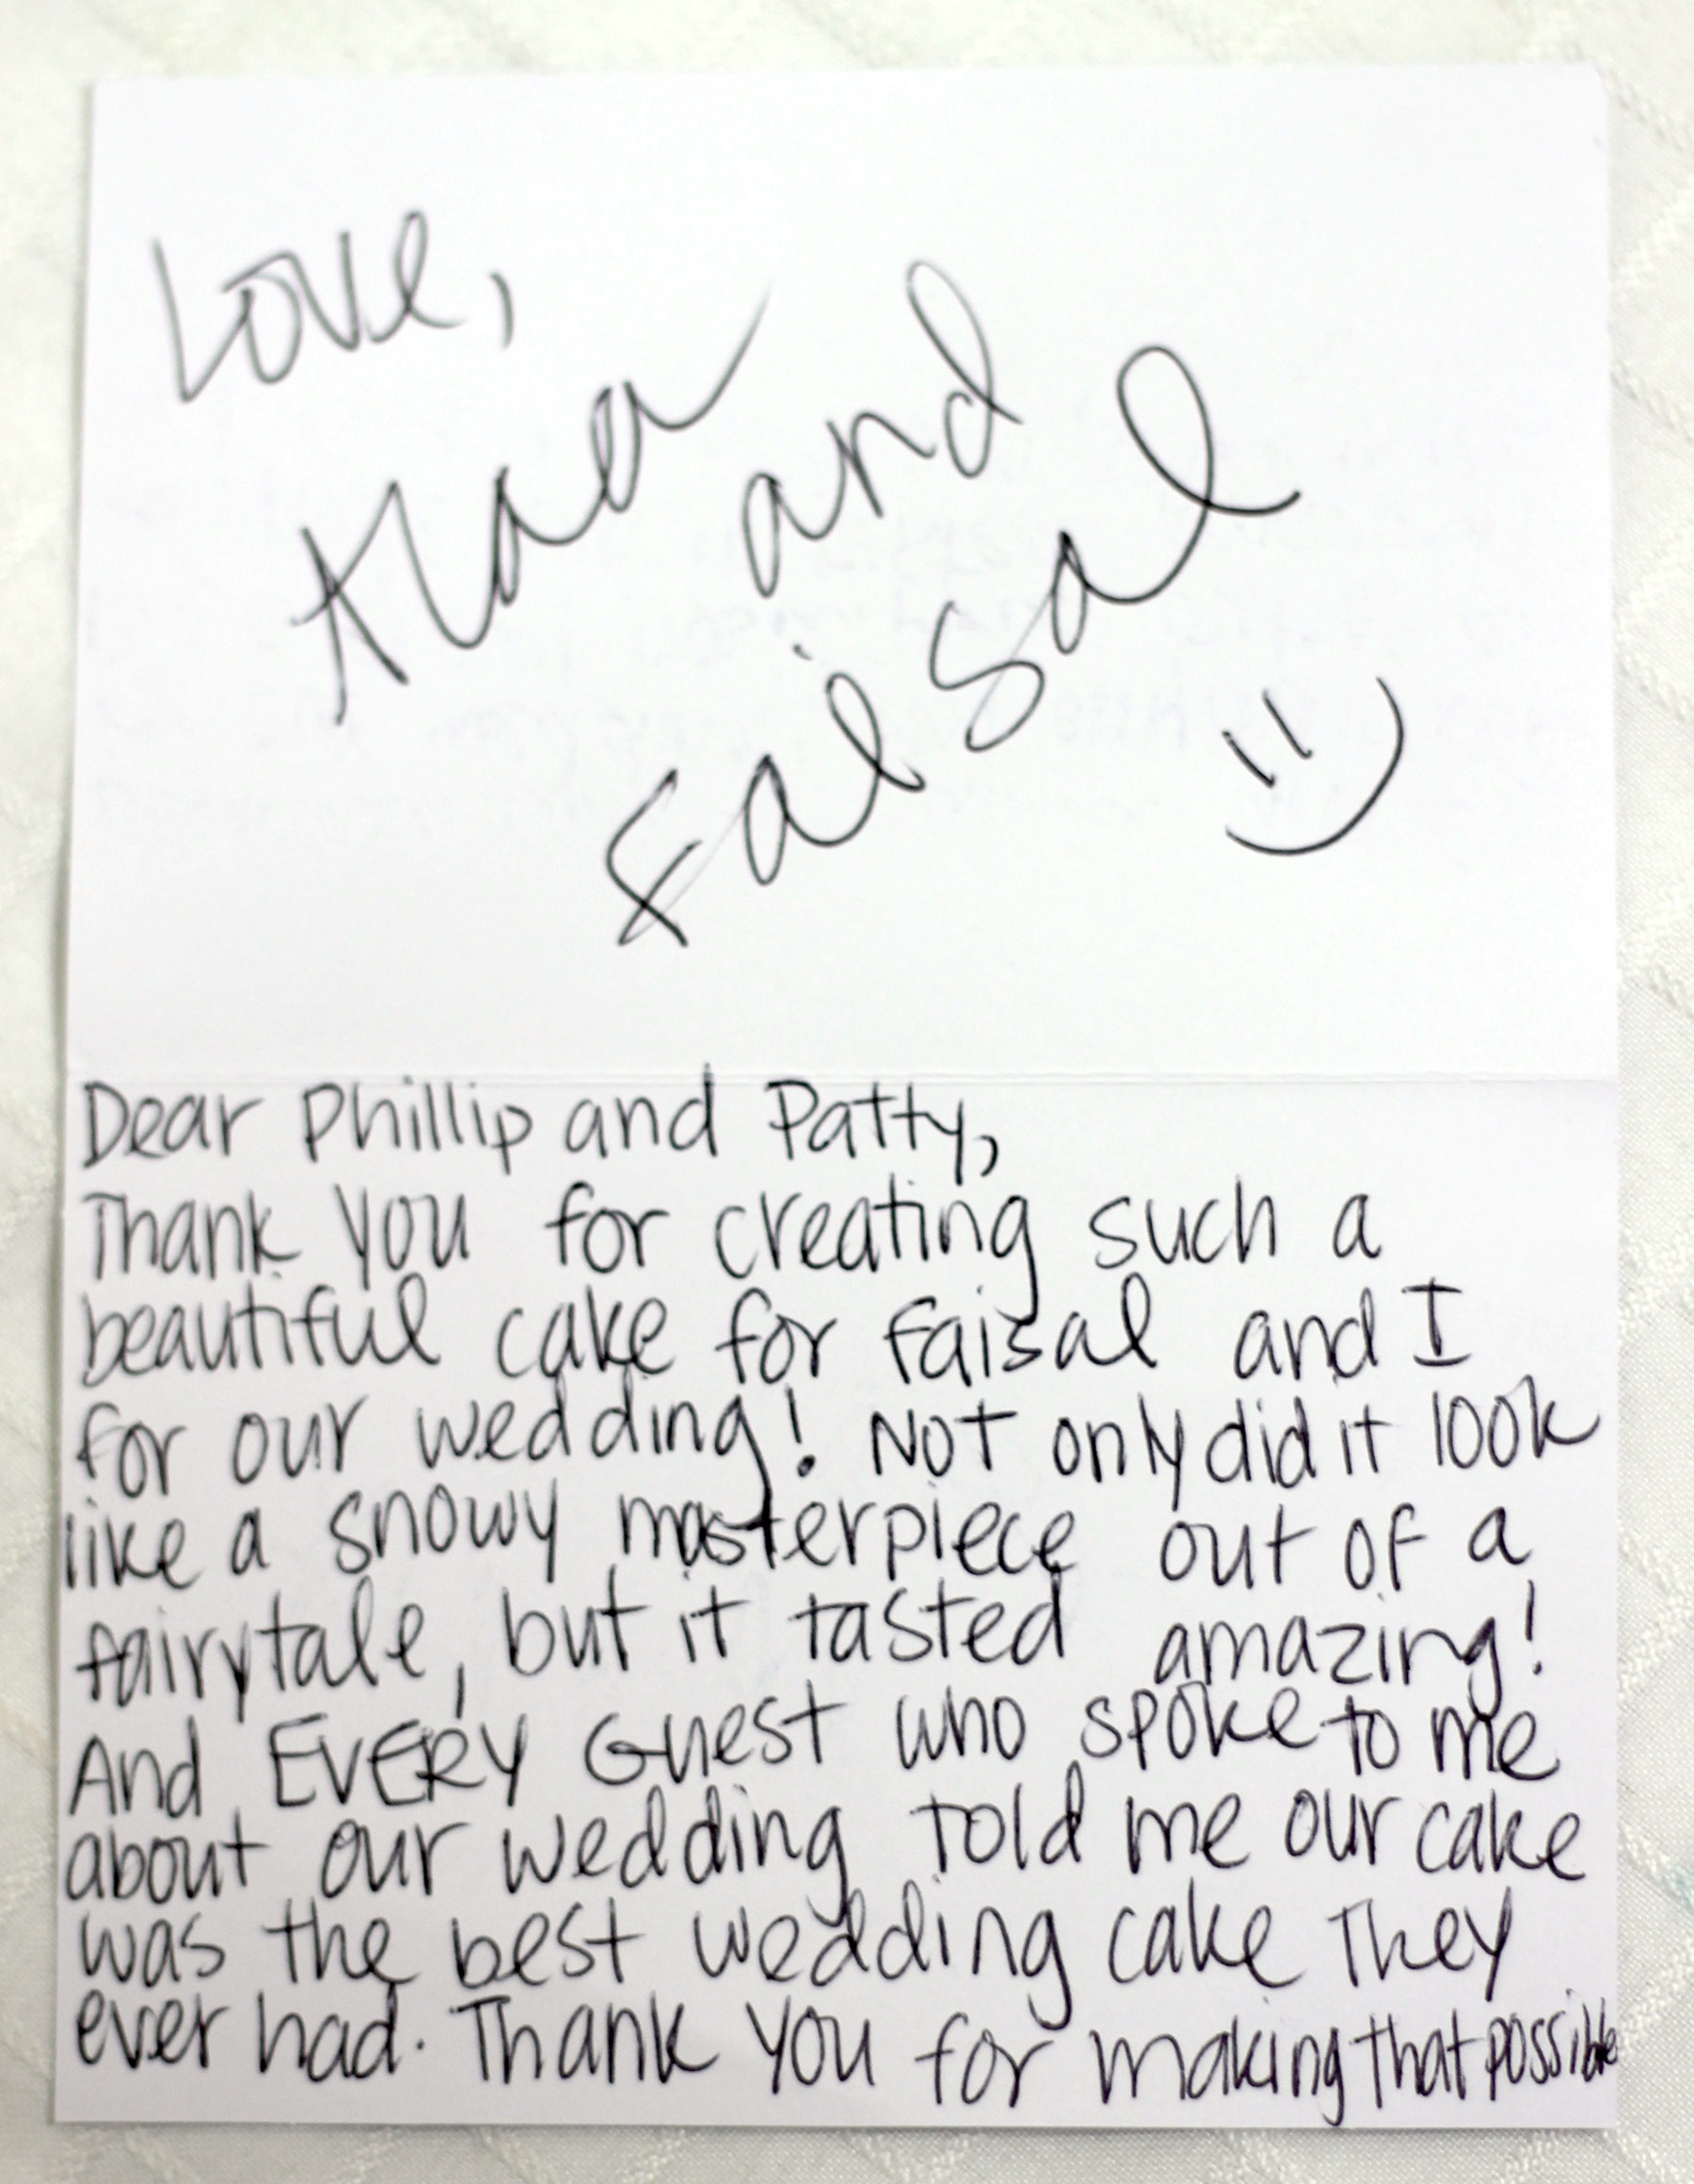 Love,
Alaa
and
Faisal
Dear Phillip and Patty,
Thank you for creating such a
beautiful cake for Faisal and I
for our wedding! Not only did it look
like a snowy masterpiece out of a
fairytale, but it tasted amazing!
And EVERY Guest who spoke to me
about our wedding told me our cake
was the best wedding cake they
ever had. Thank you for making that possible